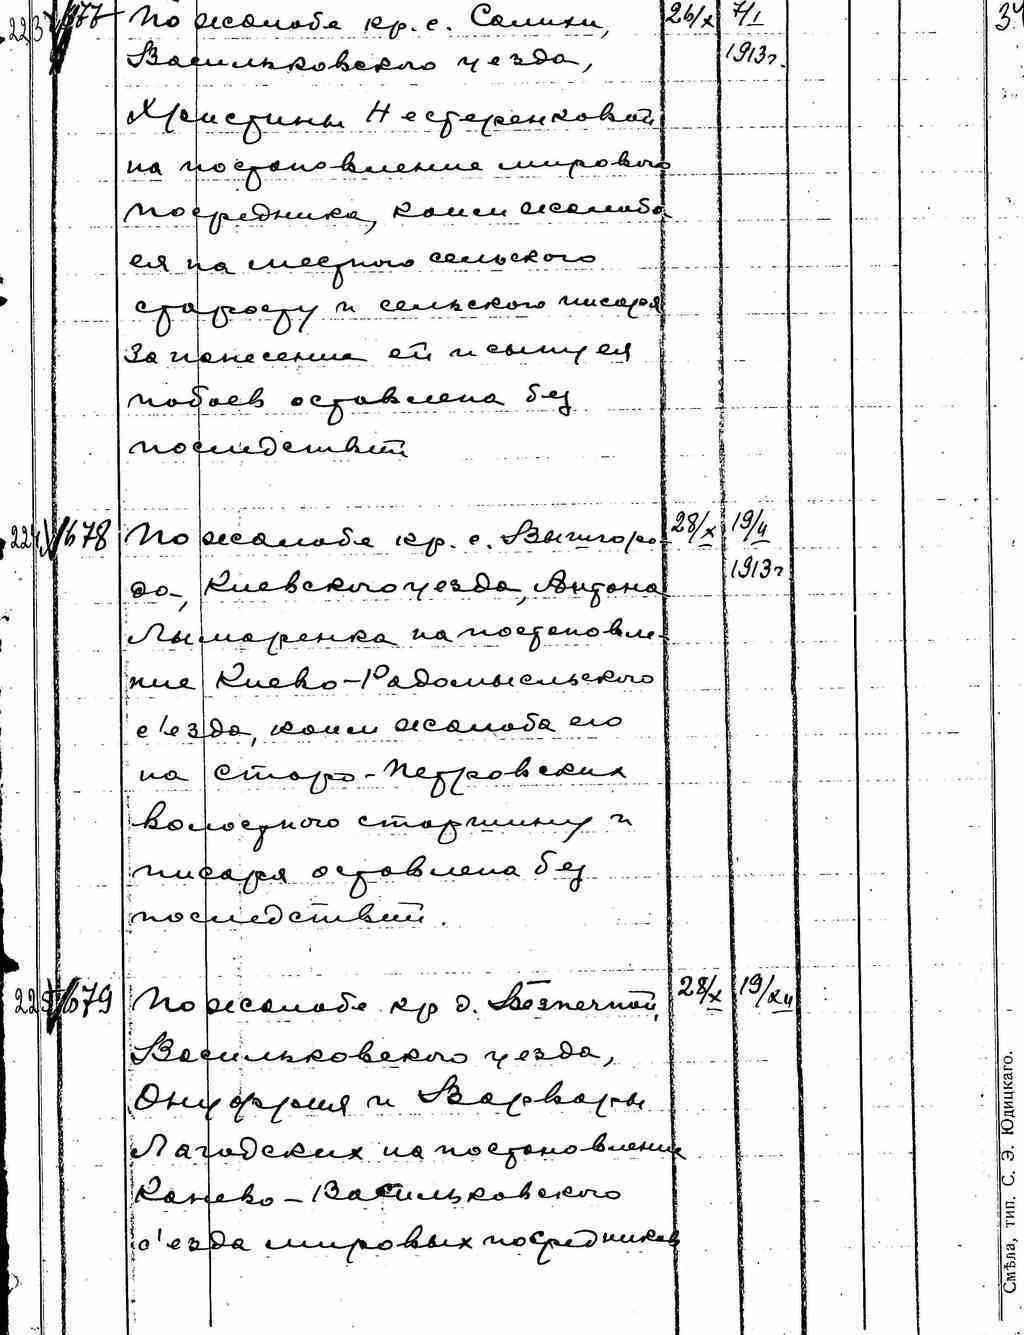 677 По жалобе кр. с. Салихи, 26/X 7/I 34
Васильковского уезда, 1913г.
Христины Нестеренковой
на постановление мирового
посредника, коим жалоба
ея на местного сельского
старосту и сельского писаря
за нанесение ей и сыну ея
побоев оставлена без
последствий
224 678 По жалобе кр. с. Вышгоро- 28/X 19/II
да, Киевского уезда, Антона 1913г
Лымаренка на постановле-
ние Киево-Радомысльского
с'езда, коим жалоба его
на Старо-Петровских
волостного старшину и
писаря оставлена без
последствий.
225 679 По жалобе кр д. Безпечной, 28/X 19/XII
Васильковского уезда,
Онуфрия и Варвары
Лагодских на постановление
Канево-Васильковского
с'езда мировых посредников
Смѣла, тип. С. Э. Юдицкаго.